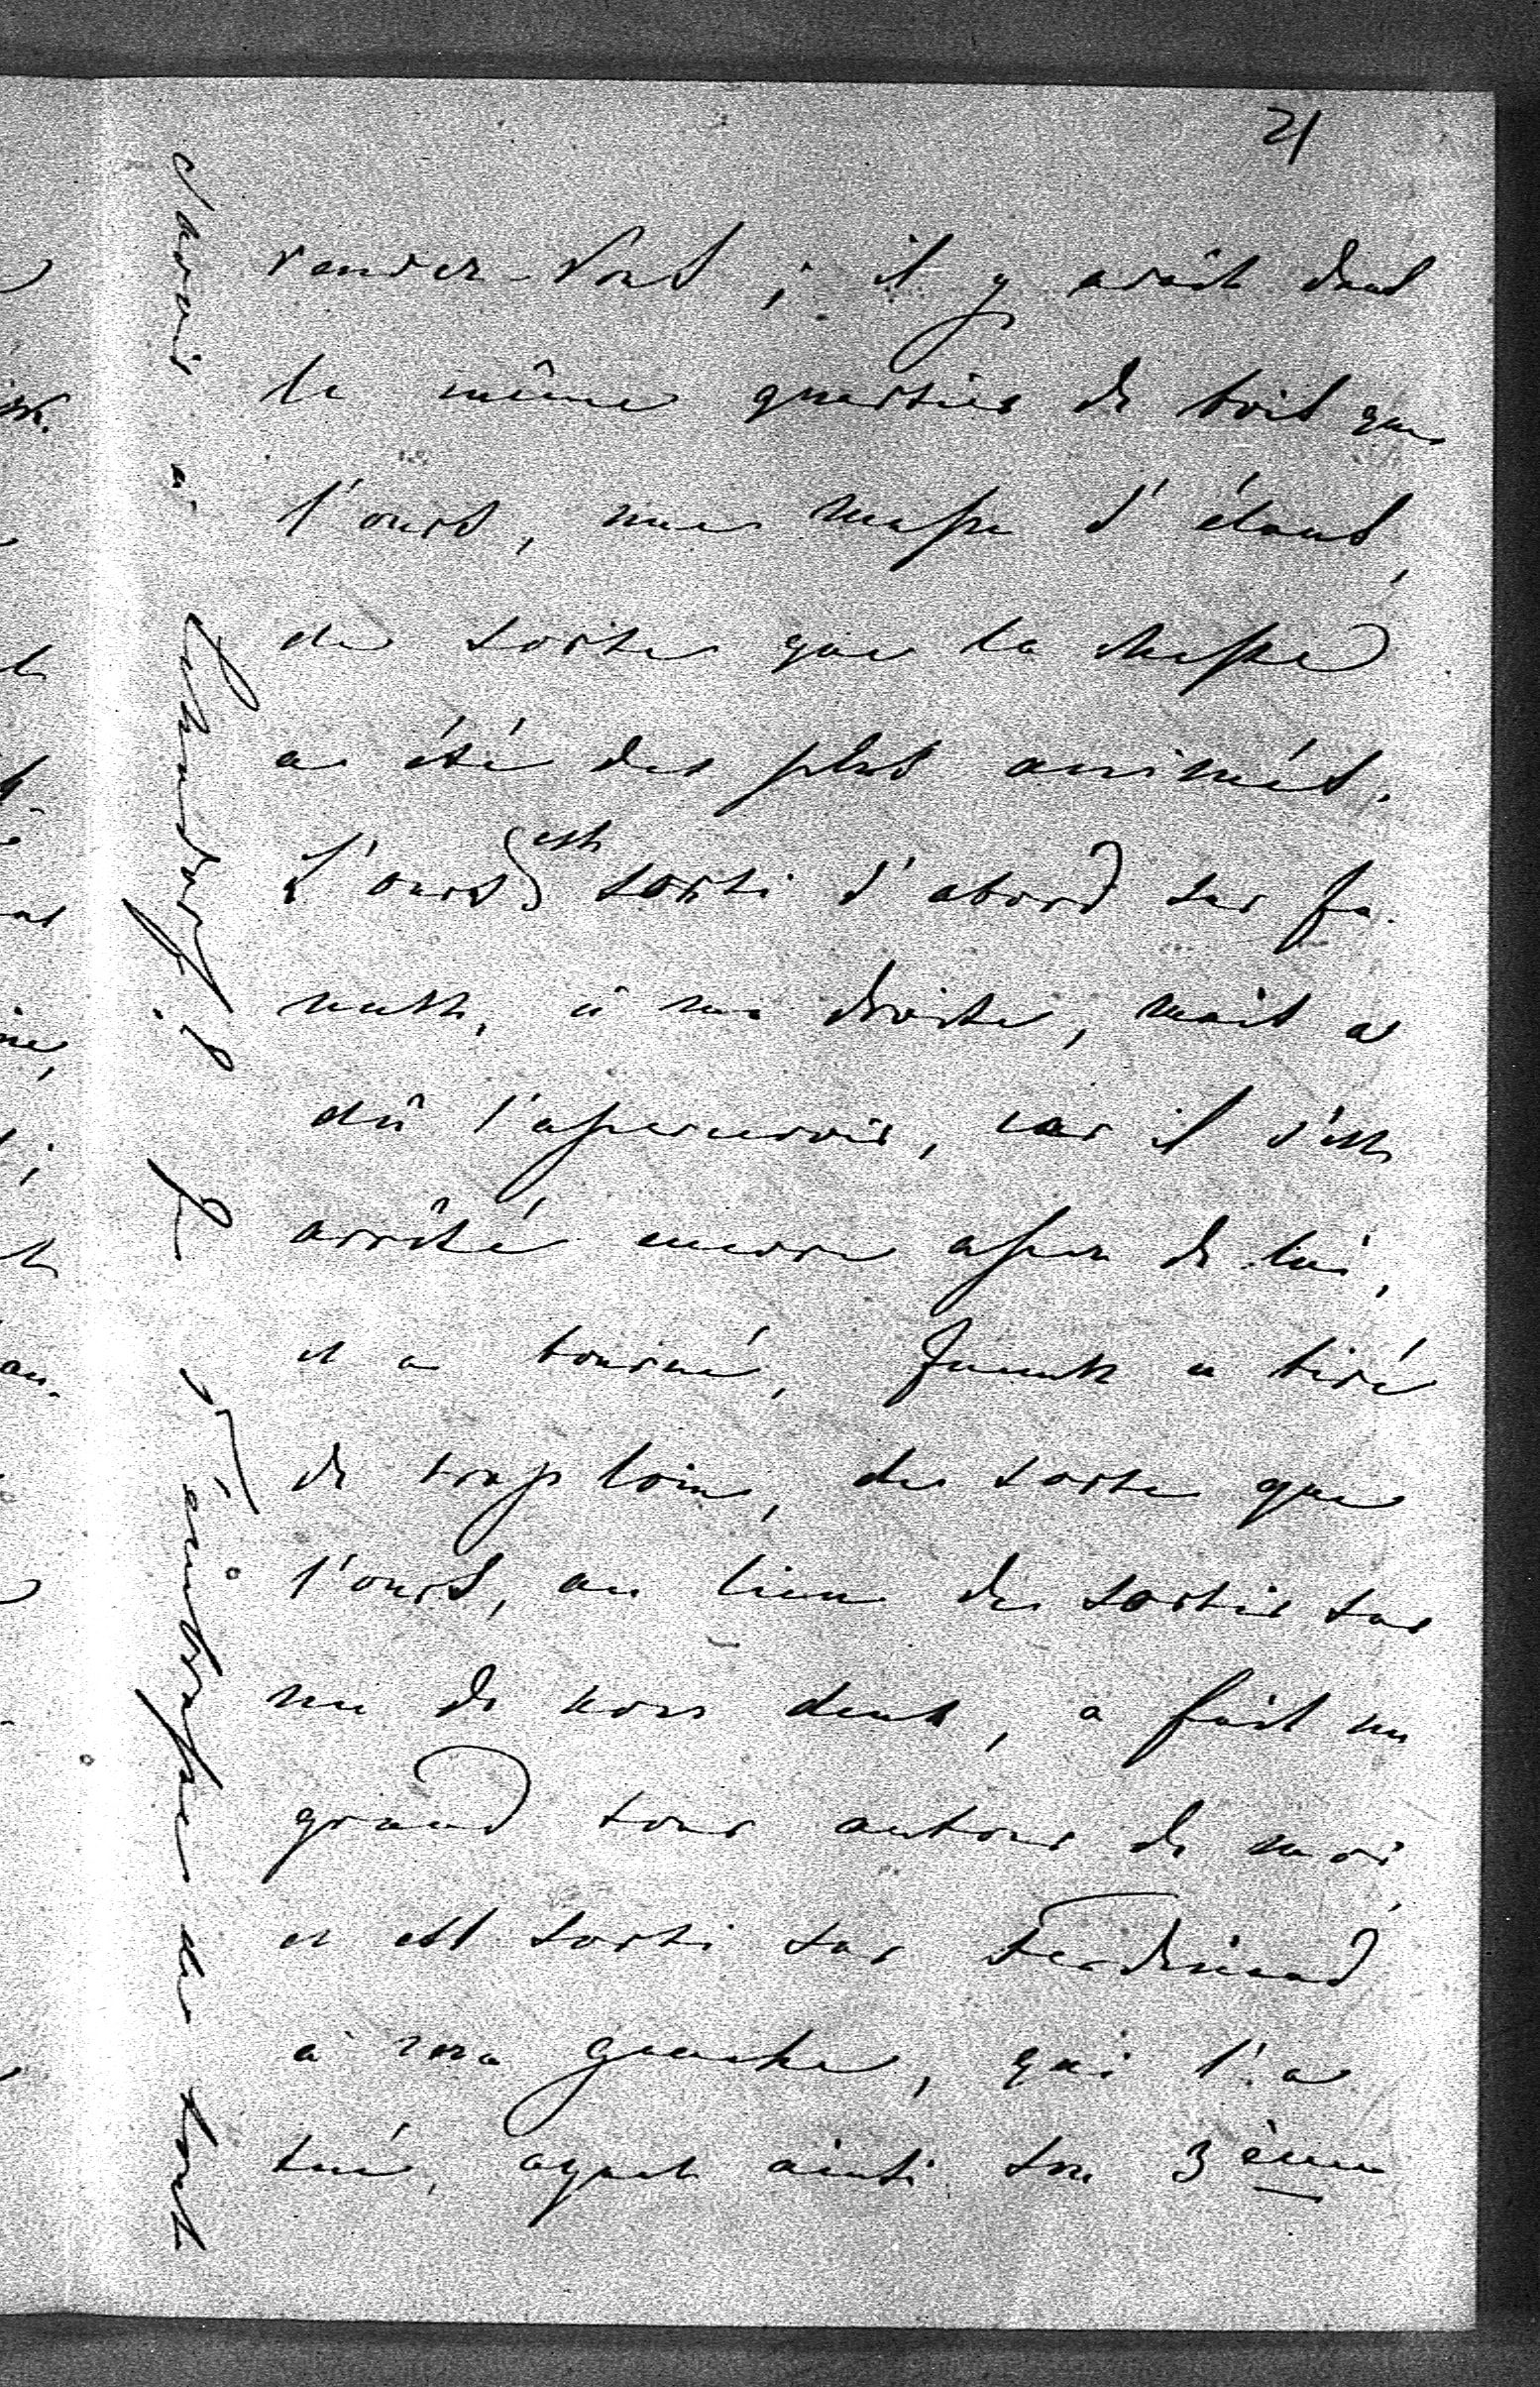 21
rendez-vous ; il y avait dans
le même quartier de bois que
l'ours, une masse d'élans,
de sorte que la chasse
a été des plus animés.
L'ours est sorti d'abord sur Ja-
nuth, à ma droite, mais a
dû l'apercevoir, car il s'est
arrêté encore assez de lui,
et a tourné, Januth a tiré
de trop loin, de sorte que
l'ours, au lieu de sortir sur
un de nous deux, a fait un
grand tour autour de moi,
et est sorti sur Ferdinand
à ma gauche, qui l'a
tué, ayant ainsi son 3ème